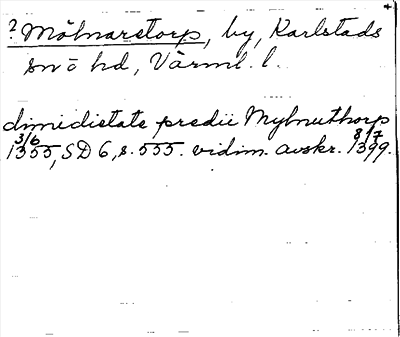 ? Mölnaretorp, by, Karlstads
sn ō hd, Värml. l.
dimidietate predii Mylnuthorp
3/6 1355, SD 6, s. 555. vidim. avskr. 8/7 1399.